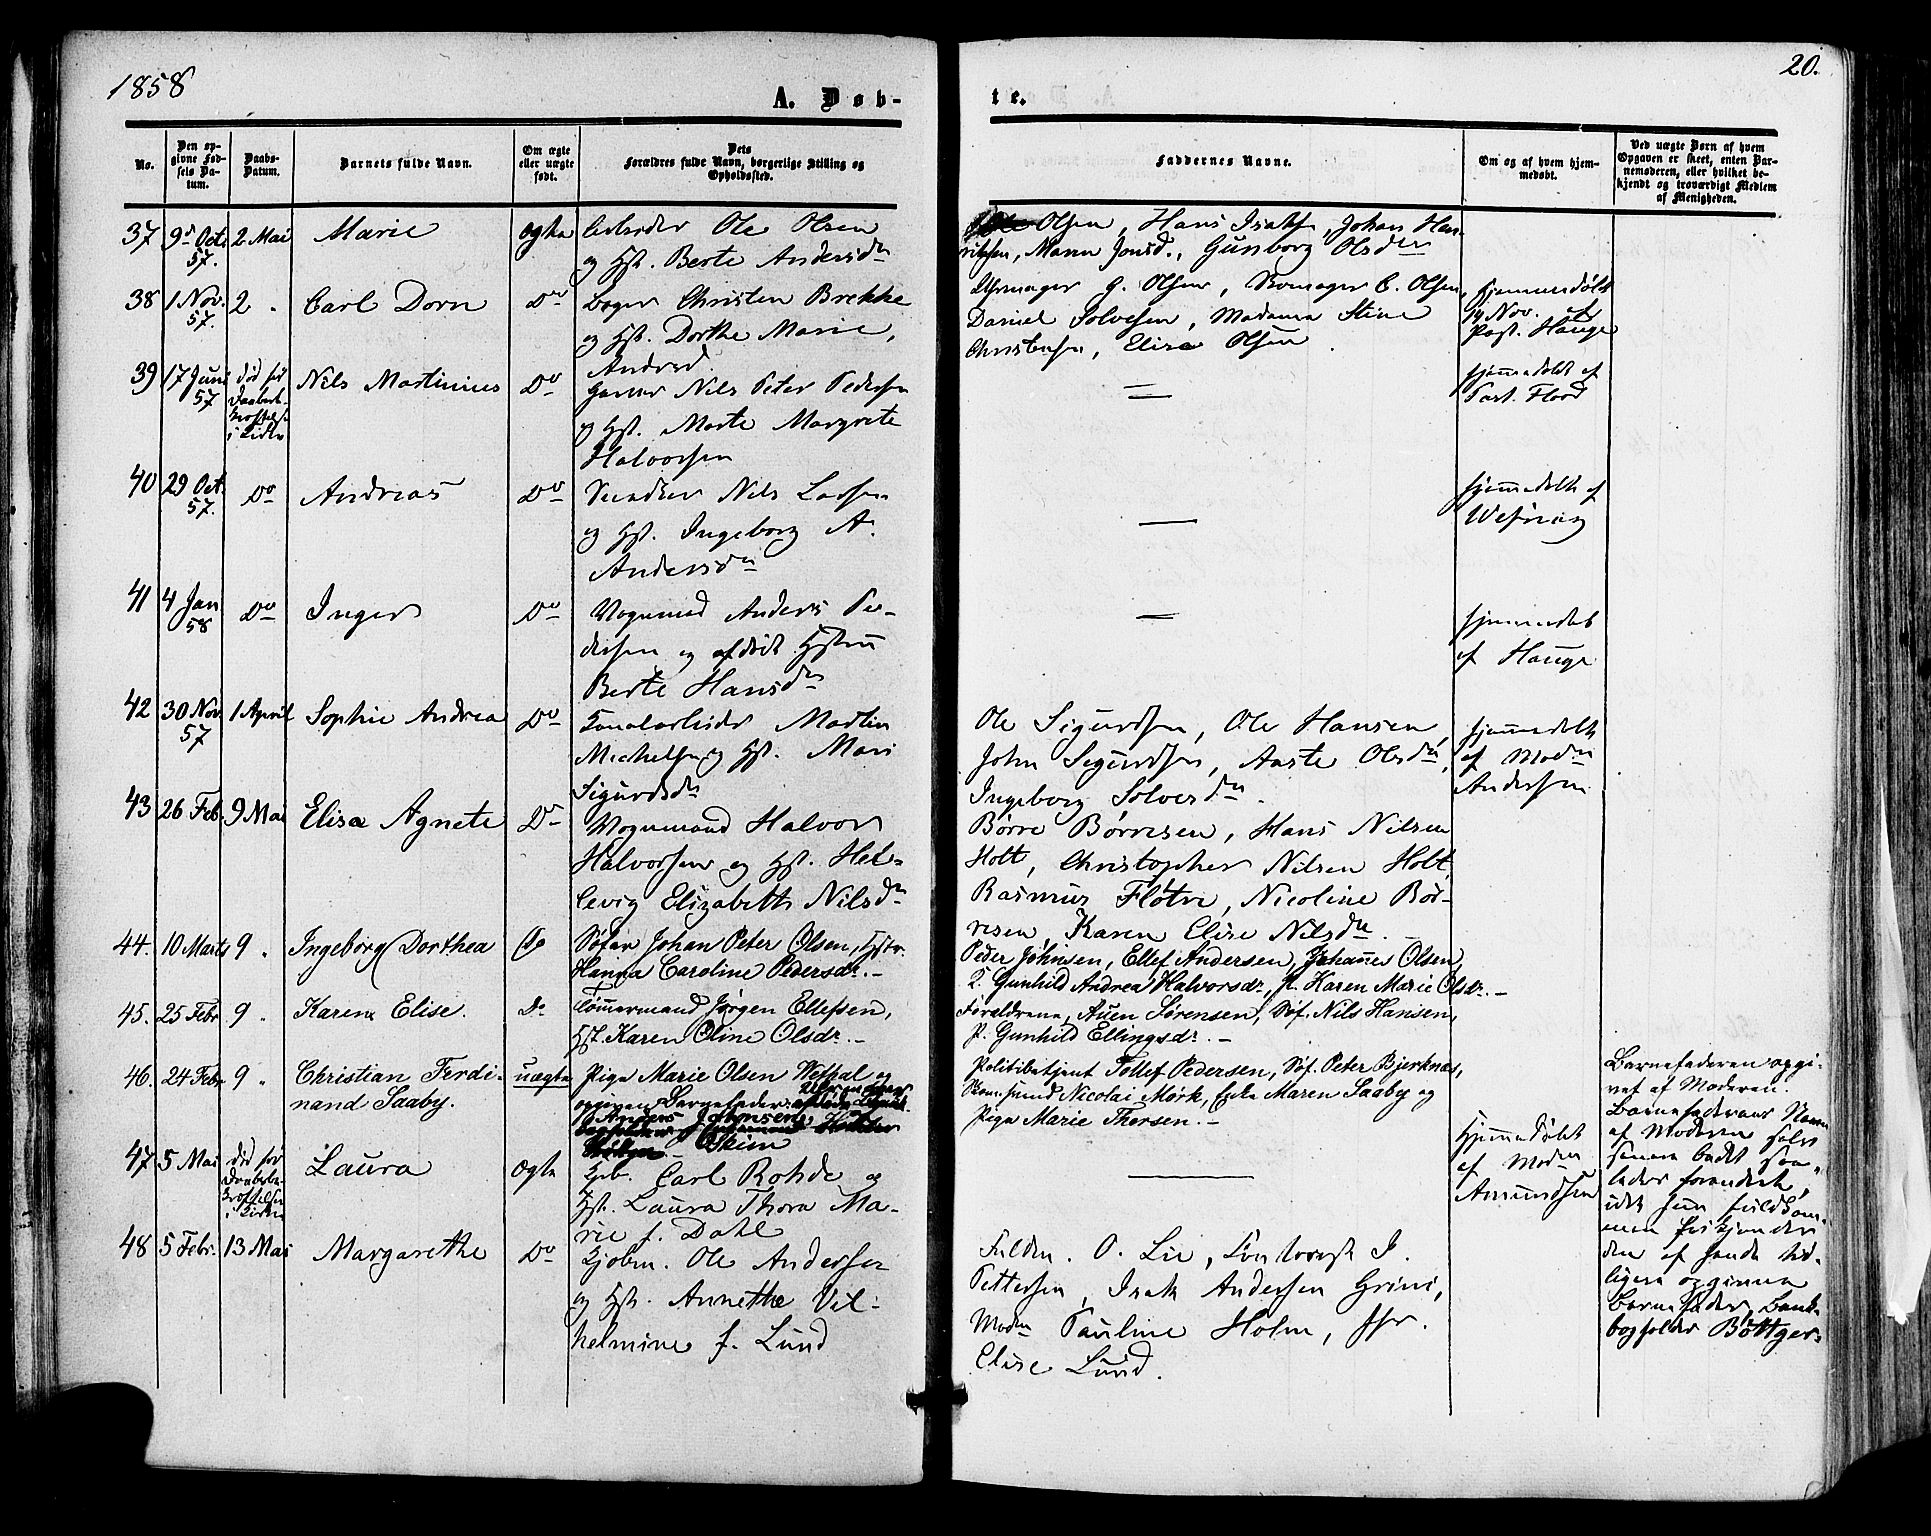 1858
20.
A. Døb-
te.
No.
Den op-
givne Fød-
sels Da-
tum.
Daabs-
Datum.
Barnets fulde Navn.
Om ægte
eller uægte
født.
Dets
Forældres fulde Navn, borgerlige Stilling og
Opholdssted.
Faddernes Navne.
Om og af hvem hjem-
medøbt.
Ved uægte Børn af hvem
Opgaven er skeet, enten Bar-
nemoderen, eller hvilket be-
kjendt og troværdigt Medlem
af Menigheden.
37 9 Oct. 57. 2 Mai Marie ægte Ole Olsen
og Hst. Berte Andersdr
Olsen, Hans Isaks., Johan Hen-
riksen, Maren Jonsd., Gunborg Olsdr
38 1 Nov. 57. 2 " Carl Dorn Do Bager Christen Brekke
og Hst. Dorthe Marie
Andrsd.
Uhrmager G. Olsen, Skomager C. Olsen,
Daniel Solvesen, Madame Stine
Christensen, Elise Olsen.
hjemmedøbt
14 Nov. af
Past. Hauge
39 17 Juni 57 død før
Daabens
i Kirken
Nils Martinius Do Garver Nils Peter Pedersen
og Hst. Marte Margrete
Halvorsen
—
hjemmedøbt af
Past. Flood
40 29 Oct. 57. Do Andreas Do Nils Larsen
og Hst. Ingeborg A.
Andersdr
—
hjemmedøbt af
41 4 Jan 58 Do Inger Do Vognmand Anders Pe-
dersen og afdøde Hstru
Berte Hansdr
—
hjemmedøbt
af Hauge
42 30 Nov. 57 1 April Sophie Andrea Do Kanalarbeider Martin
Michelsen og Hst. Mari
Sigurdsdr
Ole Sigurdsen, Ole Hansen,
John Sigurdsen, Aaste Olsdr,
Ingeborg Solvesdr.
hjemmedøbt
af Madm
Andersen
43 26 Feb. 9 Mai Elise Agnete Do Vognmand Halvor
Halvorsen og Hst. Hel-
levig Elizabeth Nilsdr
Børre Børresen, Hans Nilsen
Holt, Christopher Nilsen Holt,
Rasmus Fløtre, Nicoline Bør-
resen, Karen Elise Nilsdr.
44. 10 Marts 9 " Ingeborg Dorthea Do Søfar. Johan Peter Olsen, Hstr.
Hanna Caroline Pedersdr. —
Peder Johnsen, Ellef Andersen, Johannes Olsen,
K. Gunhild Andrea Halvorsdr., P. Karen Marie Olsdr. —
45. 25 Febr. 9 " Karen Elise. Do Tømmermand Jørgen Ellefsen,
Hst. Karen Oline Olsdr. —
Forældrene, Auen Sørensen, Søf. Nils Hansen,
P. Gunhild Ellingsdr. —
46. 24 Febr. 9 " Christian Ferdi-
nand Saaby.
uægte Pige Marie Olsen Vethal og
opgiven Barnefader:
Anders Johnsen
Politibetjent Tollef Pedersen, Søf. Peter Bjerknæs,
Nicolai Mørk, Enke Maren Saaby og
Pige Marie Thorsen. —
Barnefaderen opgi-
vet af Moderen.
Barnefaderens Navn
af Moderen selv
senere bedt saa-
ledes forandret,
idet hun fuldkom-
men frikjender
den af hende tid-
ligere opgivne
Barnefader, Bank-
bogholder Bøttger.
47 5 Mai død før
Daabsbe-
kræftelsen
i Kirken
Laura ægte Carl Rohde og
Hst. Laura Thora Ma-
rie f. Dahl
—
Hjemmedøbt
af Madm
Amundsen
48 5 Febr. 13 Mai Margarethe Do Kjøbm. Ole Andersen
og Hst. Annethe Vil-
helmine f. Lund
O. Lie, I.
Pettersen, Isak Andersen Grini,
Madm Pauline Holm, Jfr.
Elise Lund.